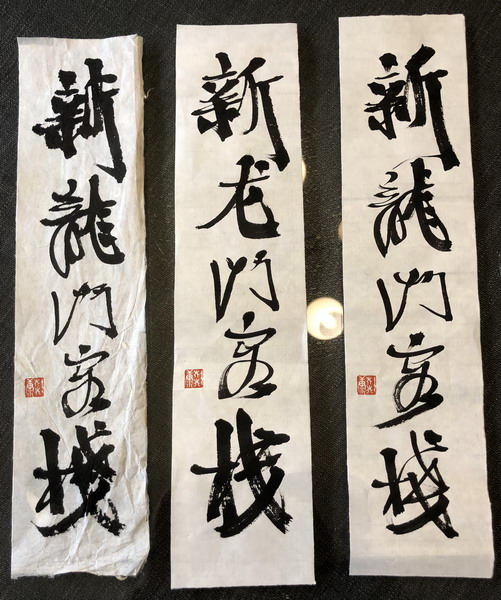 新龍門客棧
新龙门客栈
新龍門客棧